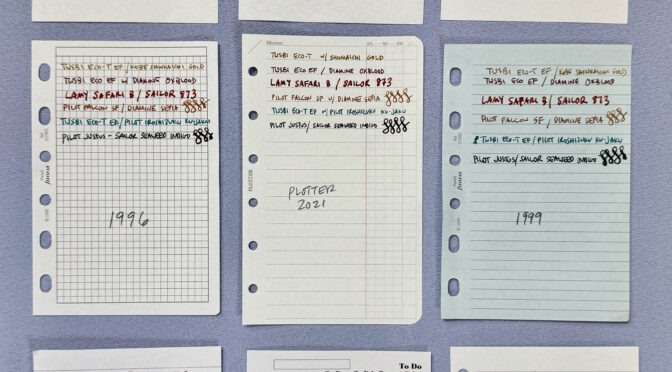 TUSBI ECO-T EF / KOBE SHINKAICHI GOLD
TUSBI ECO EF W/ DIAMINE OXBLOOD
LAMY SAFARI B / SAILOR 873
PILOT FALCON SF / DIAMINE SEPIA
TUSBI ECO-T EF / PILOT IROSHIZUKU KU-JAKU
PILOT JUSTUS - SAILOR SEAWEED INDIGO
1996
TUSBI ECO-T W/ SHINKAICHI GOLD
TUSBI ECO EF / DIAMINE OXBLOOD
LAMY SAFARI B / SAILOR 873
PILOT FALCON SF W/ DIAMINE SEPIA
TUSBI ECO-T EF W/ PILOT IROSHIZUKU KU-JAKU
PILOT JUSTUS/ SAILOR SEAWEED INDIGO
PLOTTER
2021
PLOTTER
TUSBI ECO-T EF / KOBE SHINKAICHI GOLD
TUSBI ECO EF / DIAMINE OXBLOOD
LAMY SAFARI B / SAILOR 873
PILOT FALCON SF / DIAMINE SEPIA
TUSBI ECO-T EF / PILOT IROSHIZUKU KU-JAKU
PILOT JUSTUS/ SAILOR SEAWEED INDIGO
1999
To Do